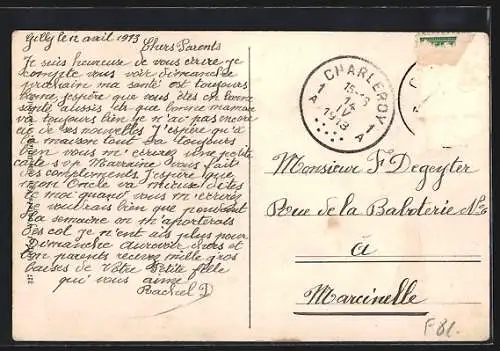 Gilly le 12 avril 1913
Chers Parents
Je suis heureuse de vous écrire je
compte vous voir dimanche
prochain ma santé est toujours
bonne j'espère que vous êtes en bonne
santé aussi que bonne maman
va toujours bien je n'ai pas encore
eu de ses nouvelles J'espère qu'à
la maison tout va toujours
bien vous m'écrirez une petite
carte s v p Marraine vous fait
des compliments J'espère que
mon Oncle va mieux dites
le moi quand vous m'écrirez
Je voudrais bien que pendant
la semaine on m'aporterais
des col je n'ent ais plus pour
Dimanche aurevoir chers et
bon parents recevez mille gros
baises de Votre Petite fille
qui vous aime
Rachel D
CHARLEROY
1 A
15-S
14
IV
1913
1 A
Monsieur F Degeyter
Rue de la Baboterie
à
Marcinelle
F 81.